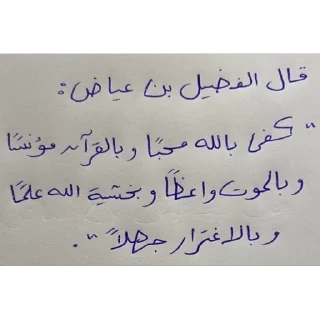 قال الفضيل بن عياض:
"كفى بالله محبًا وبالقرآن مؤنسًا
وبالموت واعظًا وبخشية الله علمًا
وبالاغترار جهلاً".